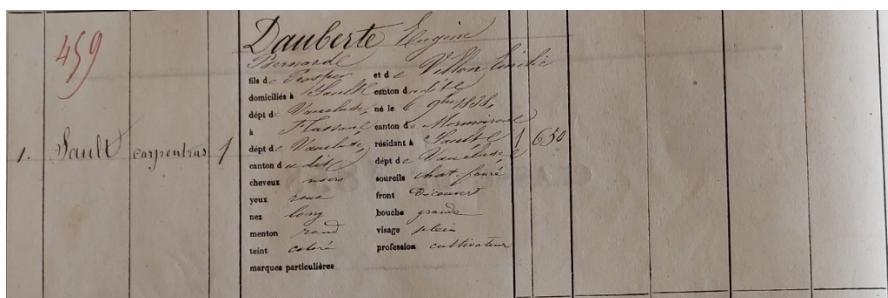 459
Dauberte Eugène
Bernard
fils de Prosper et de Villon Emilie
domiciliés à Sault canton du dit
dépt de Vaucluse, né le 6 9bre
à Flassan, canton de Mormoiron
1. Sault carpentras 1 dépt de Vaucluse, résidant à Sault 1 650
canton du dit dépt de Vaucluse,
cheveux noirs sourcils chat. foncé
yeux roux front Découvert
nez long bouche grande
menton rond visage plein
teint coloré profession cultivateur
marques particulières